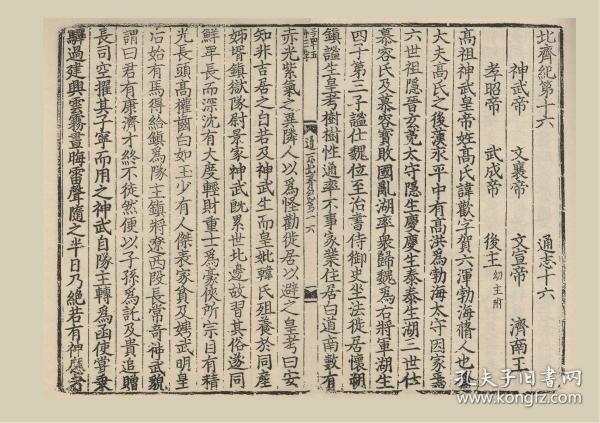 北齊紀第十六　通志十六
神武帝　文襄帝　文宣帝　濟南王
孝昭帝　武成帝　後主　幼主附
高祖神武皇帝姓高氏諱歡字賀六渾勃海蓨人也其
大夫高氏之後漢永平中有高洪爲勃海太守因家焉
六世祖隱晉玄菟太守隱生慶慶生泰泰生湖三世仕
慕容氏及慕容寶敗國亂湖率衆歸魏爲右將軍湖生
四子第三子謐仕魏位至治書侍御史坐法徙居懷朔
鎮謐生皇考樹樹性通率不事家業住居白道南數有
通志北齊紀第十六
赤光紫氣之異隣人以爲怪勸徙居以避之皇考曰安
知非吉居之自若及神武生而皇妣韓氏殂養於同產
姊壻鎮獄隊尉景家神武既累世北邊故習其俗遂同
鮮卑長而深沈有大度輕財重士爲豪俠所宗目有精
光長頭高權齒白如玉少有人傑表家貧及娉武明皇
后始有馬得給鎮爲隊主鎮將遼西段長常奇神武貌
謂曰君有康濟才終不徒然便以子孫爲託及貴追贈
長司空擢其子寧而用之神武自隊主轉爲函使嘗乘
驛過建興雲霧晝晦雷聲隨之半日乃絕若有神應者
孔夫子旧書网
www.kongfz.com